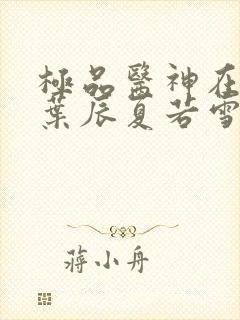 極品醫神在
葉辰夏若雪
蔣小舟